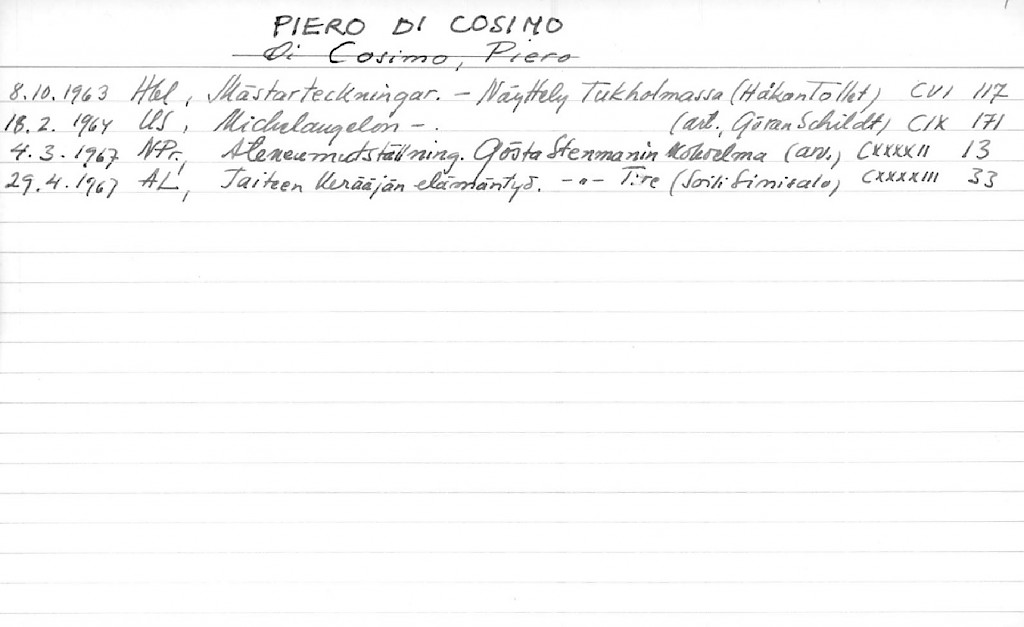 PIERO DI COSIMO
Di Cosimo, Piero
8.10.1963 Hbl, Mästarteckningar. - Näyttely Tukholmassa (Håkan Tollet) CVI 117
18.2.1964 US, Michelangelon -. (art., Göran Schildt) CIX 171
4.3.1967 N-Pr, Ateneumutställning. Gösta Stenmanin kokoelma (arv.) CXXXXII 13
29.4.1967 AL, Taiteen kerääjän elämäntyö. -"- T:re (Soili Sinisalo) CXXXXIII 33